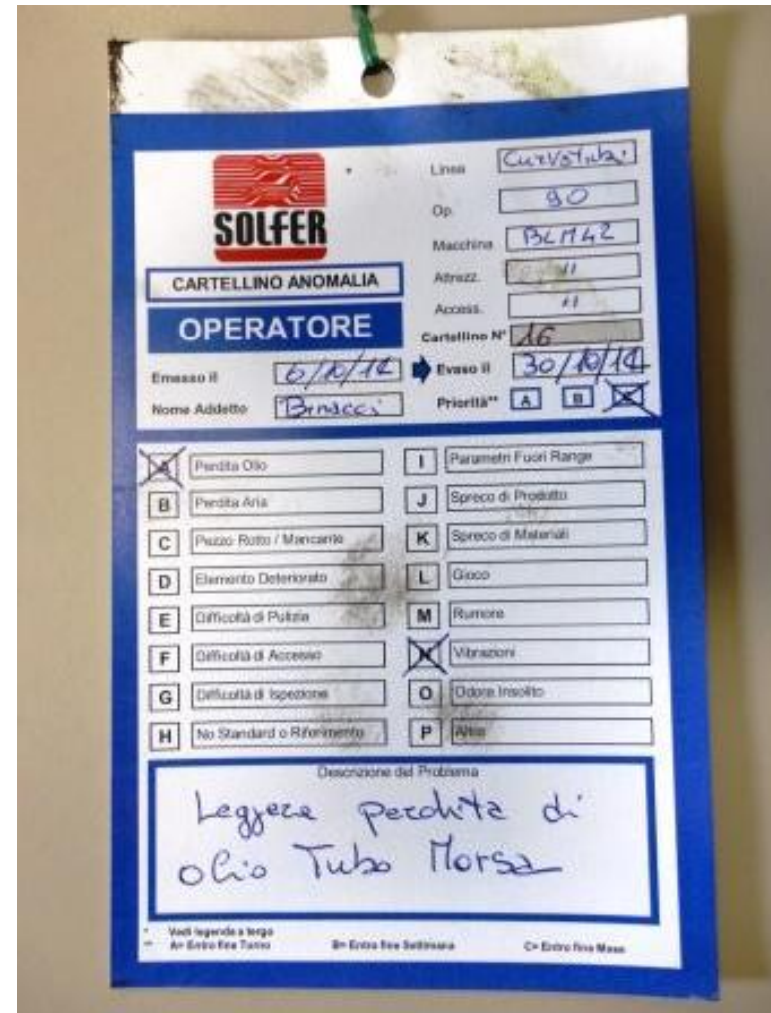 SOLFER
CARTELLINO ANOMALIA
OPERATORE
Linea Curvatubi
Op. 90
Macchina BLM42
Attrezz. "
Access. "
Cartellino N° 16
Emesso il 6/10/14
Evaso il 30/10/14
Nome Addetto
Priorità** A B C
A Perdita Olio
B Perdita Aria
C Pezzo Rotto / Mancante
D Elemento Deteriorato
E Difficoltà di Pulizia
F Difficoltà di Accesso
G Difficoltà di Ispezione
H No Standard o Riferimento
I Parametri Fuori Range
J Spreco di Prodotto
K Spreco di Materiali
L Gioco
M Rumore
N Vibrazioni
O Odore Insolito
P Altro
Descrizione del Problema
Leggera perdita di
olio Tubo Morsa
* Vedi legenda a tergo
** A= Entro fine Turno B= Entro fine Settimana C= Entro fine Mese